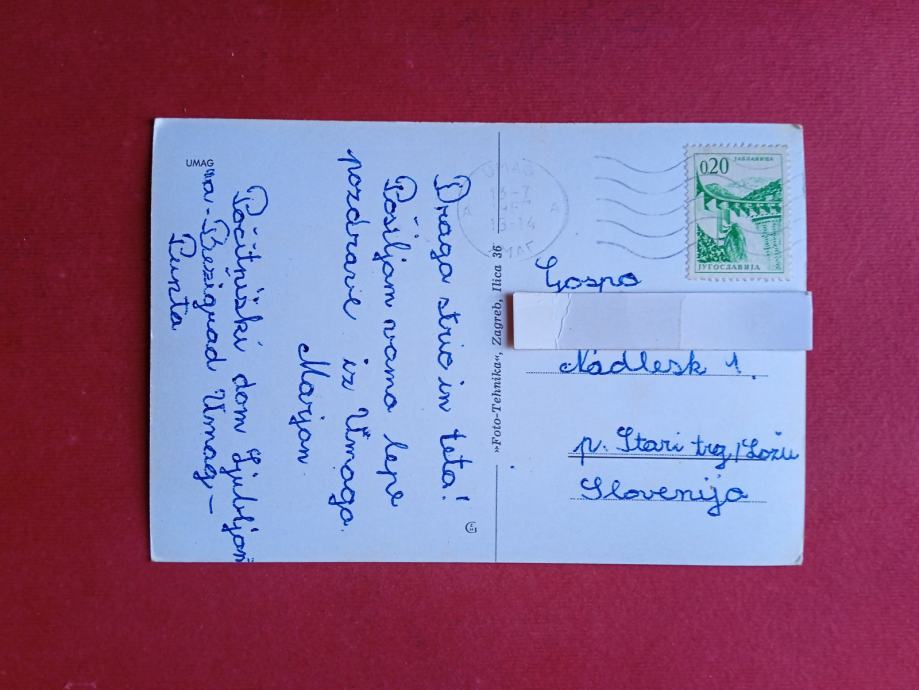 UMAG
Draga stric in teta!
Pošiljam vama lepe
pozdrave iz Umaga.
Marjan.
Počitniški dom Ljubljan
na-Bežigrad Umag-
Punta
»Foto-Tehnika«, Zagreb, Ilica 36
UMAG
13-7
13-14
A A
UMAG
0,20
ЈАБЛАНИЦА
ЈУГОСЛАВИЈА
Gospa
Nadlesk 1.
p. Stari trg/Ložu
Slovenija